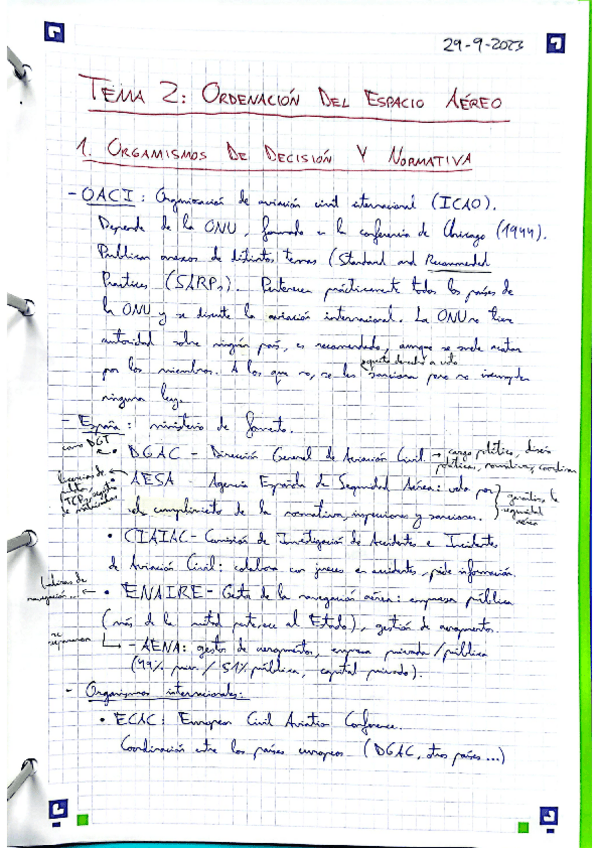 29-9-2023
TEMA 2: ORDENACIÓN DEL ESPACIO AÉREO
1. ORGANISMOS DE DECISIÓN Y NORMATIVA
- OACI: Organización de aviación civil internacional (ICAO).
Depende de la ONU, formado en la conferencia de Chicago (1944).
Publican anexos de distintos temas (Standard and Recommended
Practices (SARPs). Pertenecen prácticamente todos los países de
la ONU y se discute la aviación internacional. La ONU no tiene
autoridad sobre ningún país, es recomendado, aunque se suele acatar
por los miembros. A los que no, se les sanciona pero no incumplen
ninguna ley.
- España: ministerio de fomento.
como DGT
• DGAC - Dirección General de Aviación Civil → cargo político,
políticas, normativa, coordina
• AESA - Agencia Española de Seguridad Aérea: vela por
el cumplimiento de la normativa, inspecciones y sanciones.
seguridad aérea
licencias de
• CIAIAC - Comisión de Investigación de Accidentes e Incidentes
de Aviación Civil: colabora con jueces en accidentes, pide información.
• ENAIRE - Gesto de la navegación aérea: empresa pública
(más de la mitad pertenece al Estado), gestión de aeropuertos.
se separaron
- AENA: gestor de aeropuertos, empresa privada/pública
(49% priv / 51% pública, capital privado).
- Organismos internacionales:
• ECAC: European Civil Aviation Conference.
Coordinación entre los países europeos (DGAC, otros países...)